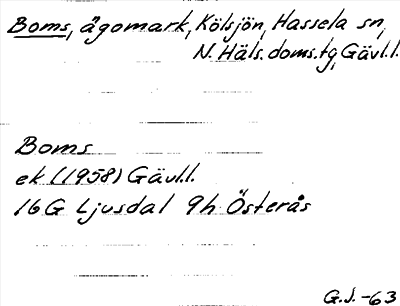 Boms, ägomark, Kölsjön, Hassela sn,
N. Häls. doms.tg, Gävl.l.
Boms
ek (1958) Gävl.l.
16G Ljusdal 9h Österås
G.J.-63